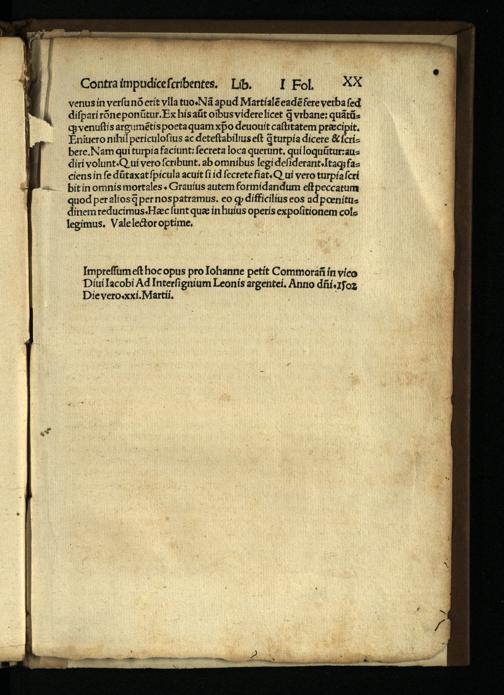 Contra impudice scribentes. Lib. I Fol. XX
venus in versu nō erit vlla tuo. Nā apud Martialē eadē fere verba sed
dispari rōne ponūtur. Ex his aūt oībus videre licet q̄ vrbane: quātū⸗
q̢ venustis argumētis poeta quam xp̄o deuouit castitatem præcipit.
Enīuero nihil periculosius ac detestabilius est q̄ turpia dicere & scri⸗
bere. Nam qui turpia faciunt: secreta loca querunt. qui loquūtur: au⸗
diri volunt. Qui vero scribunt. ab omnibus legi desiderant. Itaq̢ fa⸗
ciens in se dūtaxat spicula acuit si id secrete fiat. Qui vero turpia scri
bit in omnis mortales. Grauius autem formidandum est peccatum
quod per alios q̄ per nos patramus. eo q̢ difficilius eos ad pœnitu⸗
dinem reducimus. Hæc sunt quæ in huius operis expositionem col⸗
legimus. Vale lector optime.
Impressum est hoc opus pro Iohanne petit Commorañ in vico
Diui Iacobi Ad Intersignium Leonis argentei. Anno dñi. 1502
Die vero. xxi. Martii.